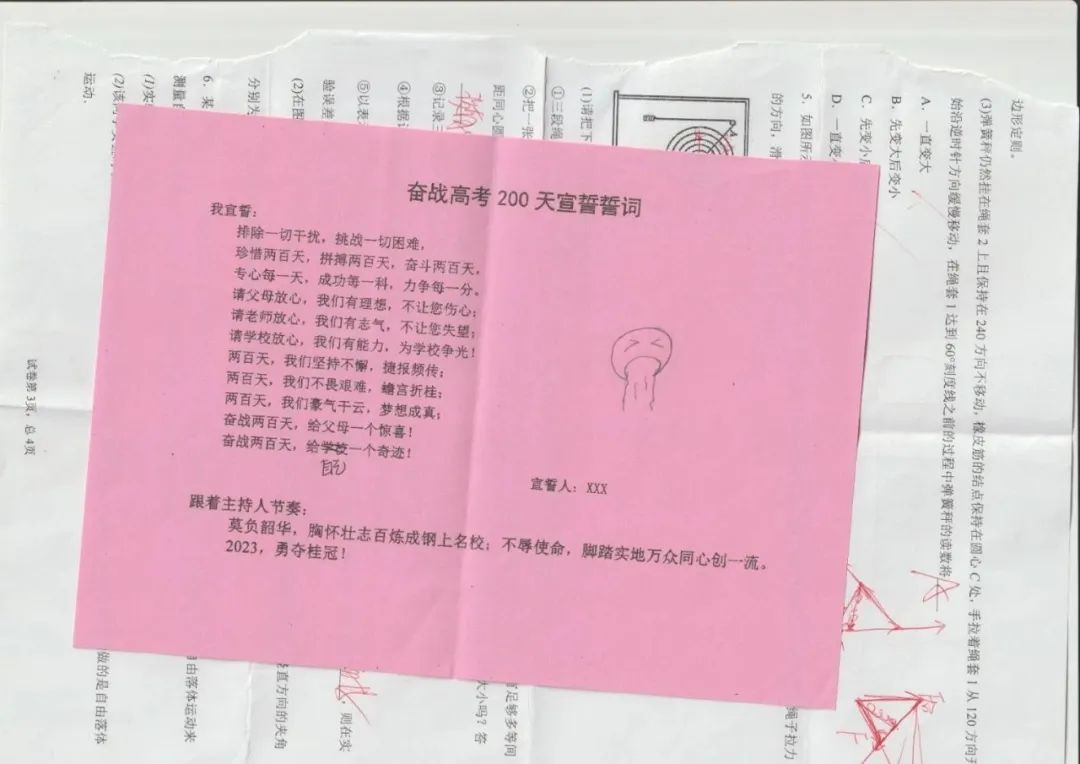 奋战高考 200 天宣誓誓词
我宣誓：
排除一切干扰，挑战一切困难，
珍惜两百天，拼搏两百天，奋斗两百天，
专心每一天，成功每一科，力争每一分。
请父母放心，我们有理想，不让您伤心；
请老师放心，我们有志气，不让您失望；
请学校放心，我们有能力，为学校争光！
两百天，我们坚持不懈，捷报频传；
两百天，我们不畏艰难，蟾宫折桂；
两百天，我们豪气干云，梦想成真；
奋战两百天，给父母一个惊喜！
奋战两百天，给学校一个奇迹！
自己
宣誓人：XXX
跟着主持人节奏：
莫负韶华，胸怀壮志百炼成钢上名校；不辱使命，脚踏实地万众同心创一流。
2023，勇夺桂冠！
边形定则。
(3)弹簧秤仍然挂在绳套 2 上且保持在 240 方向不移动，橡皮筋的结点保持在圆心 C 处，手拉着绳套 1 从 120 方向开
始沿逆时针方向缓慢移动，在绳套 1 达到 60°刻度线之前的过程中弹簧秤的读数将 A
A．一直变大
B．先变大后变小
C．先变小后
D．一直变
5．如图所示
的方向，滑
绳子拉力
(1)请把下
①三段绳
②把一张
有足够多等间
距同心圆
大小吗？答
③记录三
④根据
⑤以表
，则在实
验误差
(2)在图
竖直方向的夹角
分别为
6．某
自由落体运动来
测量
(1)实
(2)该
做的是自由落体
运动．
试卷第 3页，总 4页